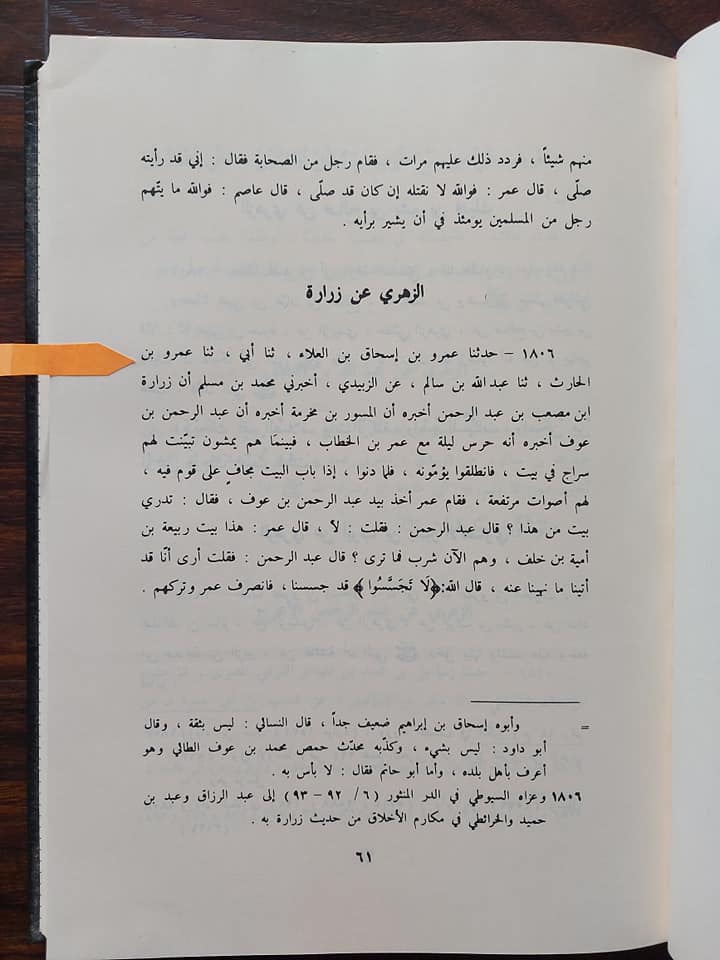 منهم شيئاً ، فردد ذلك عليهم مرات ، فقام رجل من الصحابة فقال : إني قد رأيته
صلّى ، قال عمر : فوالله لا نقتله إن كان قد صلّى ، قال عاصم : فوالله ما يتّهم
رجل من المسلمين يومئذ في أن يشير برأيه .
الزهري عن زرارة
١٨٠٦ – حدثنا عمرو بن إسحاق بن العلاء ، ثنا أبي ، ثنا عمرو بن
الحارث ، ثنا عبد الله بن سالم ، عن الزبيدي ، أخبرني محمد بن مسلم أن زرارة
ابن مصعب بن عبد الرحمن أخبره أن المسور بن مخرمة أخبره أن عبد الرحمن بن
عوف أخبره أنه حرس ليلة مع عمر بن الخطاب ، فبينما هم يمشون تبيّنت لهم
سراج في بيت ، فانطلقوا يؤمّونه ، فلما دنوا ، إذا باب البيت مجافٍ على قوم فيه ،
لهم أصوات مرتفعة ، فقام عمر أخذ بيد عبد الرحمن بن عوف ، فقال : تدري
بيت من هذا ؟ قال عبد الرحمن : فقلت : لا ، قال عمر : هذا بيت ربيعة بن
أمية بن خلف ، وهم الآن شرب فما ترى ؟ قال عبد الرحمن : فقلت أرى أنّا قد
أتينا ما نهينا عنه ، قال الله:﴿لَا تَجَسَّسُوا﴾ قد جسسنا ، فانصرف عمر وتركهم .
= وأبوه إسحاق بن إبراهيم ضعيف جداً ، قال النسائي : ليس بثقة ، وقال
أبو داود : ليس بشيء ، وكذّبه محدّث حمص محمد بن عوف الطائي وهو
أعرف بأهل بلده ، وأما أبو حاتم فقال : لا بأس به .
١٨٠٦ وعزاه السيوطي في الدر المنثور (٦/ ٩٢ – ٩٣) إلى عبد الرزاق وعبد بن
حميد والخرائطي في مكارم الأخلاق من حديث زرارة به .
٦١